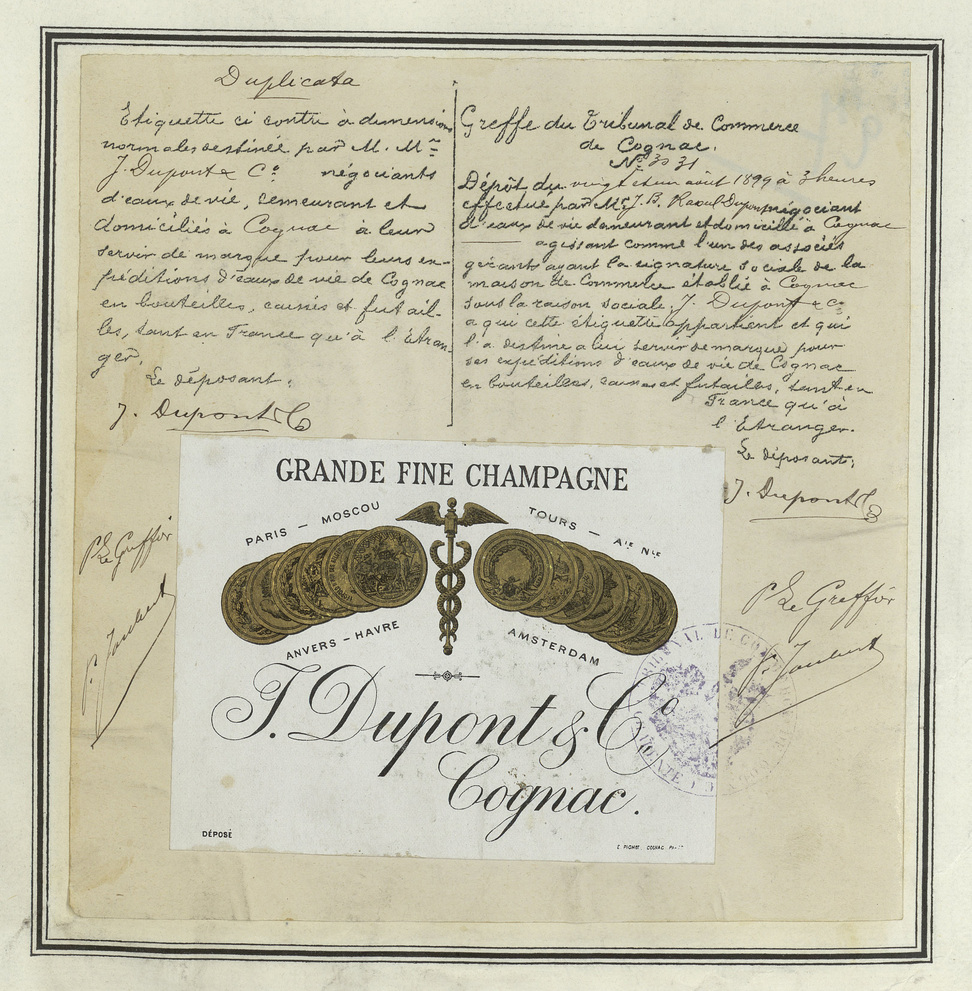 Duplicata
Etiquette ci contre à dimensions
normales destinée par M. Mrs
J. Dupont & Co négociants
d'eaux de vie, demeurant et
domiciliés à Cognac à leur
servir de marque pour leurs ex-
péditions d'eaux de vie de Cognac
en bouteilles, caisses et futail-
les, tant en France qu'à l'Etran-
ger.
Le déposant:
J. Dupont & Co
Greffe du Tribunal de Commerce
de Cognac.
No 3031
Dépôt du vingt et un août 1899 à 3 heures
effectué par Mr J. B. Raoul Dupont négociant
d'eaux de vie demeurant et domicilié à Cognac
agissant comme l'un des associés
gérants ayant la signature sociale de la
maison de Commerce établie à Cognac
sous la raison sociale J. Dupont & Co
a qui cette étiquette appartient et qui
l'a destinée a lui servir de marque pour
ses expéditions d'eaux de vie de Cognac
en bouteilles, caisses et futailles, tant en
France qu'à
l'Etranger.
Le déposant:
J. Dupont & Co
P. Le Greffier
P. Le Greffier
J. Joubert
J. Joubert
GRANDE FINE CHAMPAGNE
PARIS – MOSCOU
TOURS – Aie Nle
ANVERS – HAVRE
AMSTERDAM
J. Dupont & Co
Cognac.
DÉPOSÉ
TRIBUNAL DE COMMERCE